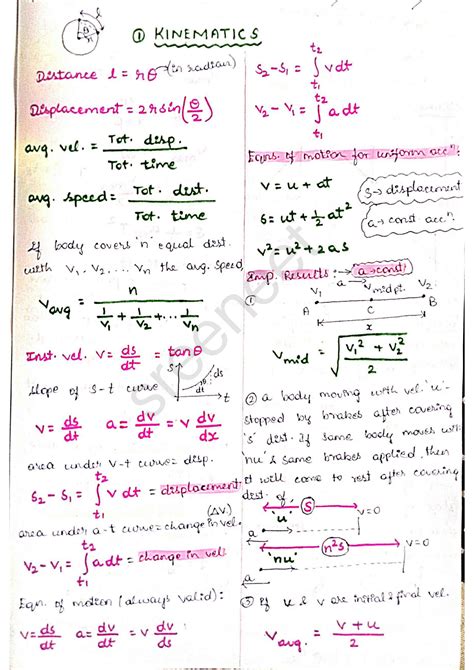 ① KINEMATICS
Distance l = rθ (in radian)
Displacement = 2rsin(θ/2)
avg. vel. = Tot. disp. / Tot. time
avg. speed = Tot. dist. / Tot. time
If body covers 'n' equal dist.
with V₁, V₂, ... Vn the avg. speed
Vavg = n / (1/V₁ + 1/V₂ + ... 1/Vn)
Inst. vel. V = ds/dt = tanθ
slope of s-t curve
s
ds
θ
dt
t
V = ds/dt a = dv/dt = v dv/dx
area under v-t curve = disp.
S₂-S₁ = ∫ t₁ t₂ v dt = displacement
(ΔV)
area under a-t curve = change in vel.
V₂-V₁ = ∫ t₁ t₂ a dt = change in vel
Eqn. of motion (always valid):
V = ds/dt a = dv/dt = v dv/ds
S₂-S₁ = ∫ t₁ t₂ v dt
V₂-V₁ = ∫ t₁ t₂ a dt
Eqns. of motion for uniform accⁿ:
V = u + at
s → displacement
S = ut + 1/2 at²
a → const accⁿ.
V² = u² + 2as
Imp. Results :→ (a → const)
①
V₁ a → Vmidpt. V₂
A C B
x
Vmid = √((V₁² + V₂²)/2)
② a body moving with vel. 'u'
stopped by brakes after covering
's' dist. If same body moves with
'nu' & same brakes applied, then
it will come to rest after covering
dist. of
S
'u' V=0
a
n²s
'nu' V=0
a
③ If u & v are initial & final vel.
Vavg. = (v+u)/2
sreeneet